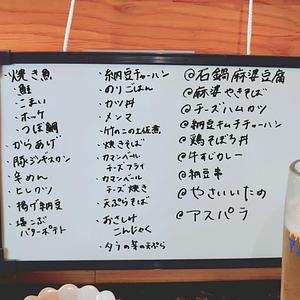 ・焼き魚
・鮭
・こまい
・ホッケ
・つぼ鯛
・からあげ
・豚ジンギスカン
・辛めん
・ヒレカツ
・揚げ納豆
・塩こぶ
バターポテト
・納豆チャーハン
・のりごはん
・カツ丼
・メンマ
・竹のこ土佐煮
・焼きそば
・カマンベール
チーズフライ
・カマンベール
チーズ焼き
・天ぷらそば
・おさしけ
こんにゃく
・タラの芽の天ぷら
@石鍋麻婆豆腐
@麻婆やきそば
@チーズハムカツ
@納豆キムチチャーハン
@鶏そぼろ丼
@牛すじカレー
@納豆串
@やさいいため
@アスパラ